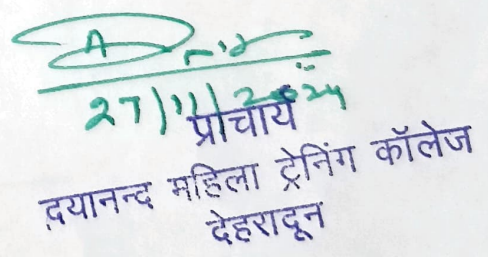 27/11/2024
प्राचार्य
दयानन्द महिला ट्रेनिंग कॉलेज
देहरादून